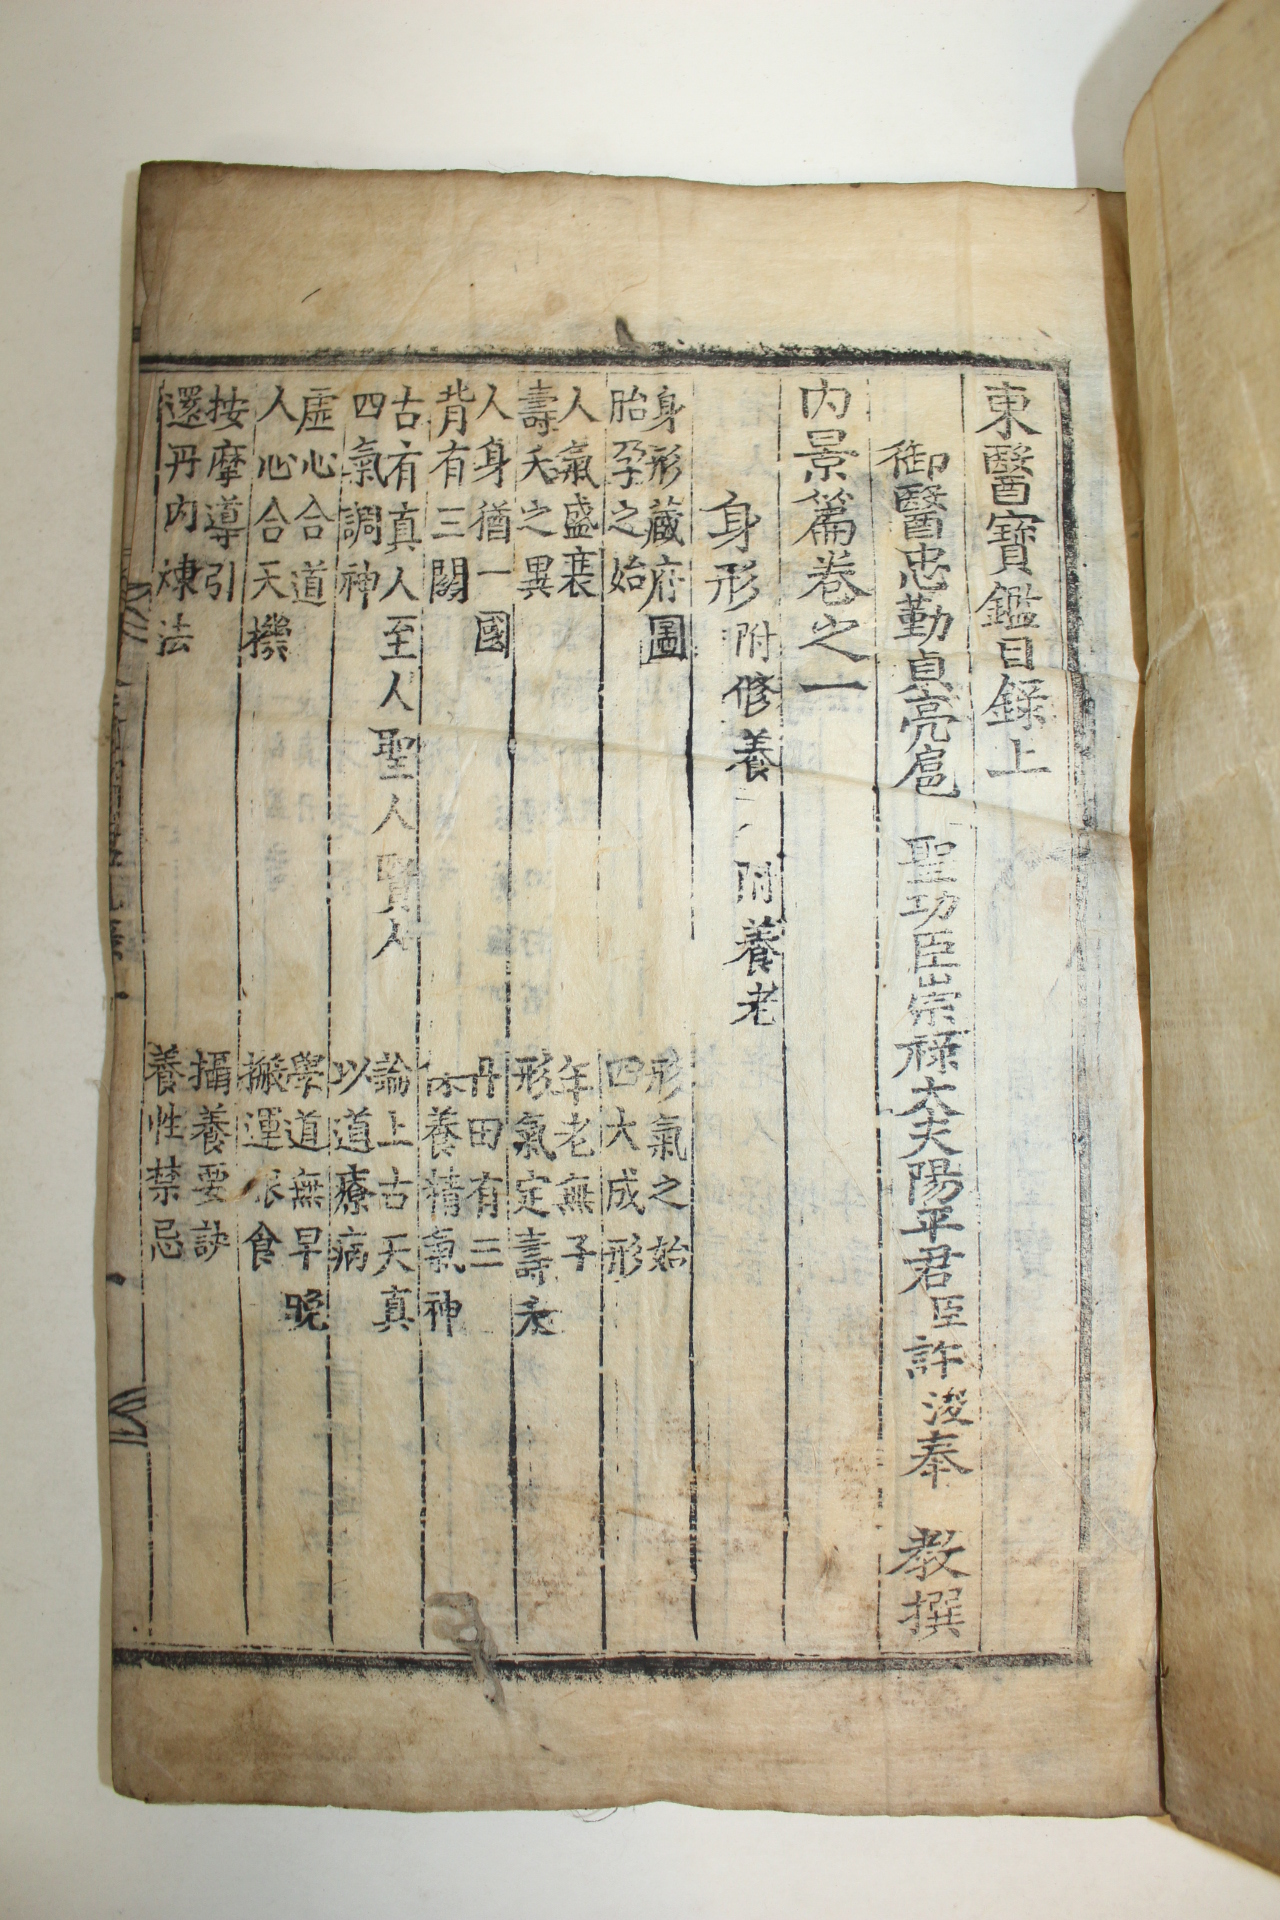 東醫寶鑑目錄上
御醫忠勤貞亮扈 聖功臣崇祿大夫陽平君臣許浚奉 教撰
內景篇卷之一
身形附修養 附養老
身形藏府圖 形氣之始
胎孕之始 四大成形
人氣盛衰 年老無子
壽夭之異 形氣定壽夭
人身猶一國 丹田有三
背有三關 保養精氣神
古有真人至人聖人賢人 論上古天真
四氣調神 以道療病
虛心合道 學道無早晚
人心合天機 搬運服食
按摩導引 攝養要訣
還丹內煉法 養性禁忌